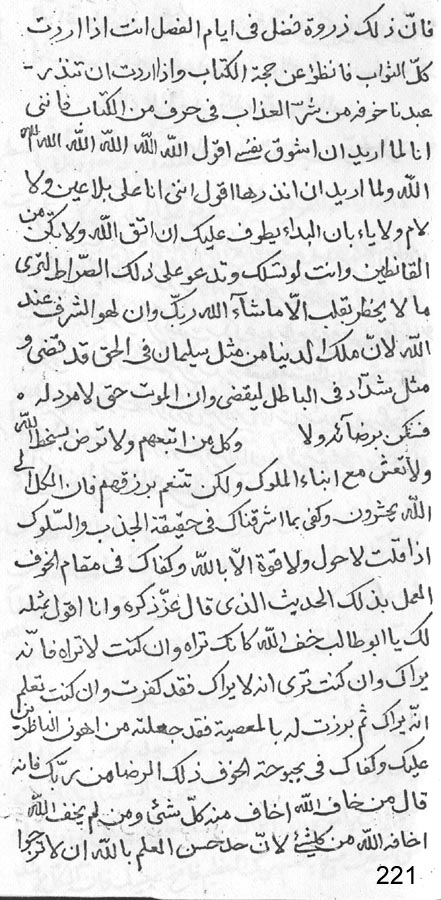 فانّ ذلک ذروة فضل فی ایام الفصل انت اذا اردت
کلّ الثواب فانظر عن حجة الکتاب واذا اردت ان تنذر
عبدنا خوفه من شرّ العذاب فی حرف من الکتاب فاننی
انا لما ارید ان اشوق نفسی اقول الله الله الله الله الله
الله ولما ارید ان انذرها اقول اننی انا علی بلاعین ولا
لام ولا یاء بان البداء یطوف علیک ان اتق الله ولا تکن من
القانطین وانت لو تسلک وتدعو علی ذلک الصراط لتری
ما لا یخطر بقلب الّا ما شآء الله ربک وان لهو الشرف عند
الله لانّ ملک الدنیا من مثل سلیمان فی الحق قد قضی و
مثل شدّاد فی الباطل لیقضی وان الموت حق لا مرد له
فتکن برضآئه ولا وکل من اتبعهم ولا ترض بسخط الله
ولا تعش مع ابناء الملوک ولکن تتنعم برزقهم فان الکل الی
الله یحشرون وکفی بما اشرقناک فی حقیقة الجذب والسلوک
اذا قلت لا حول ولا قوة الّا بالله وکفاک فی مقام الخوف
العمل بذلک الحدیث الذی قال عزّ ذکره وانا اقول بمثله
لک یا ابو طالب خف الله کانک تراه وان کنت لا تراه فانّه
یراک وان کنت تری انه لا یراک فقد کفرت وان کنت تعلم
انّه یراک ثم برزت له بالمعصیة فقد جعلته من اهون الناظرین
علیک وکفاک فی بحبوحة الخوف ذلک الرضا من ربّک فانه
قال من خاف الله اخاف منه کلّ شئ ومن لم یخف الله
اخافه الله من کلشئ لانّ حد حسن العلم بالله ان لا ترجوا
221